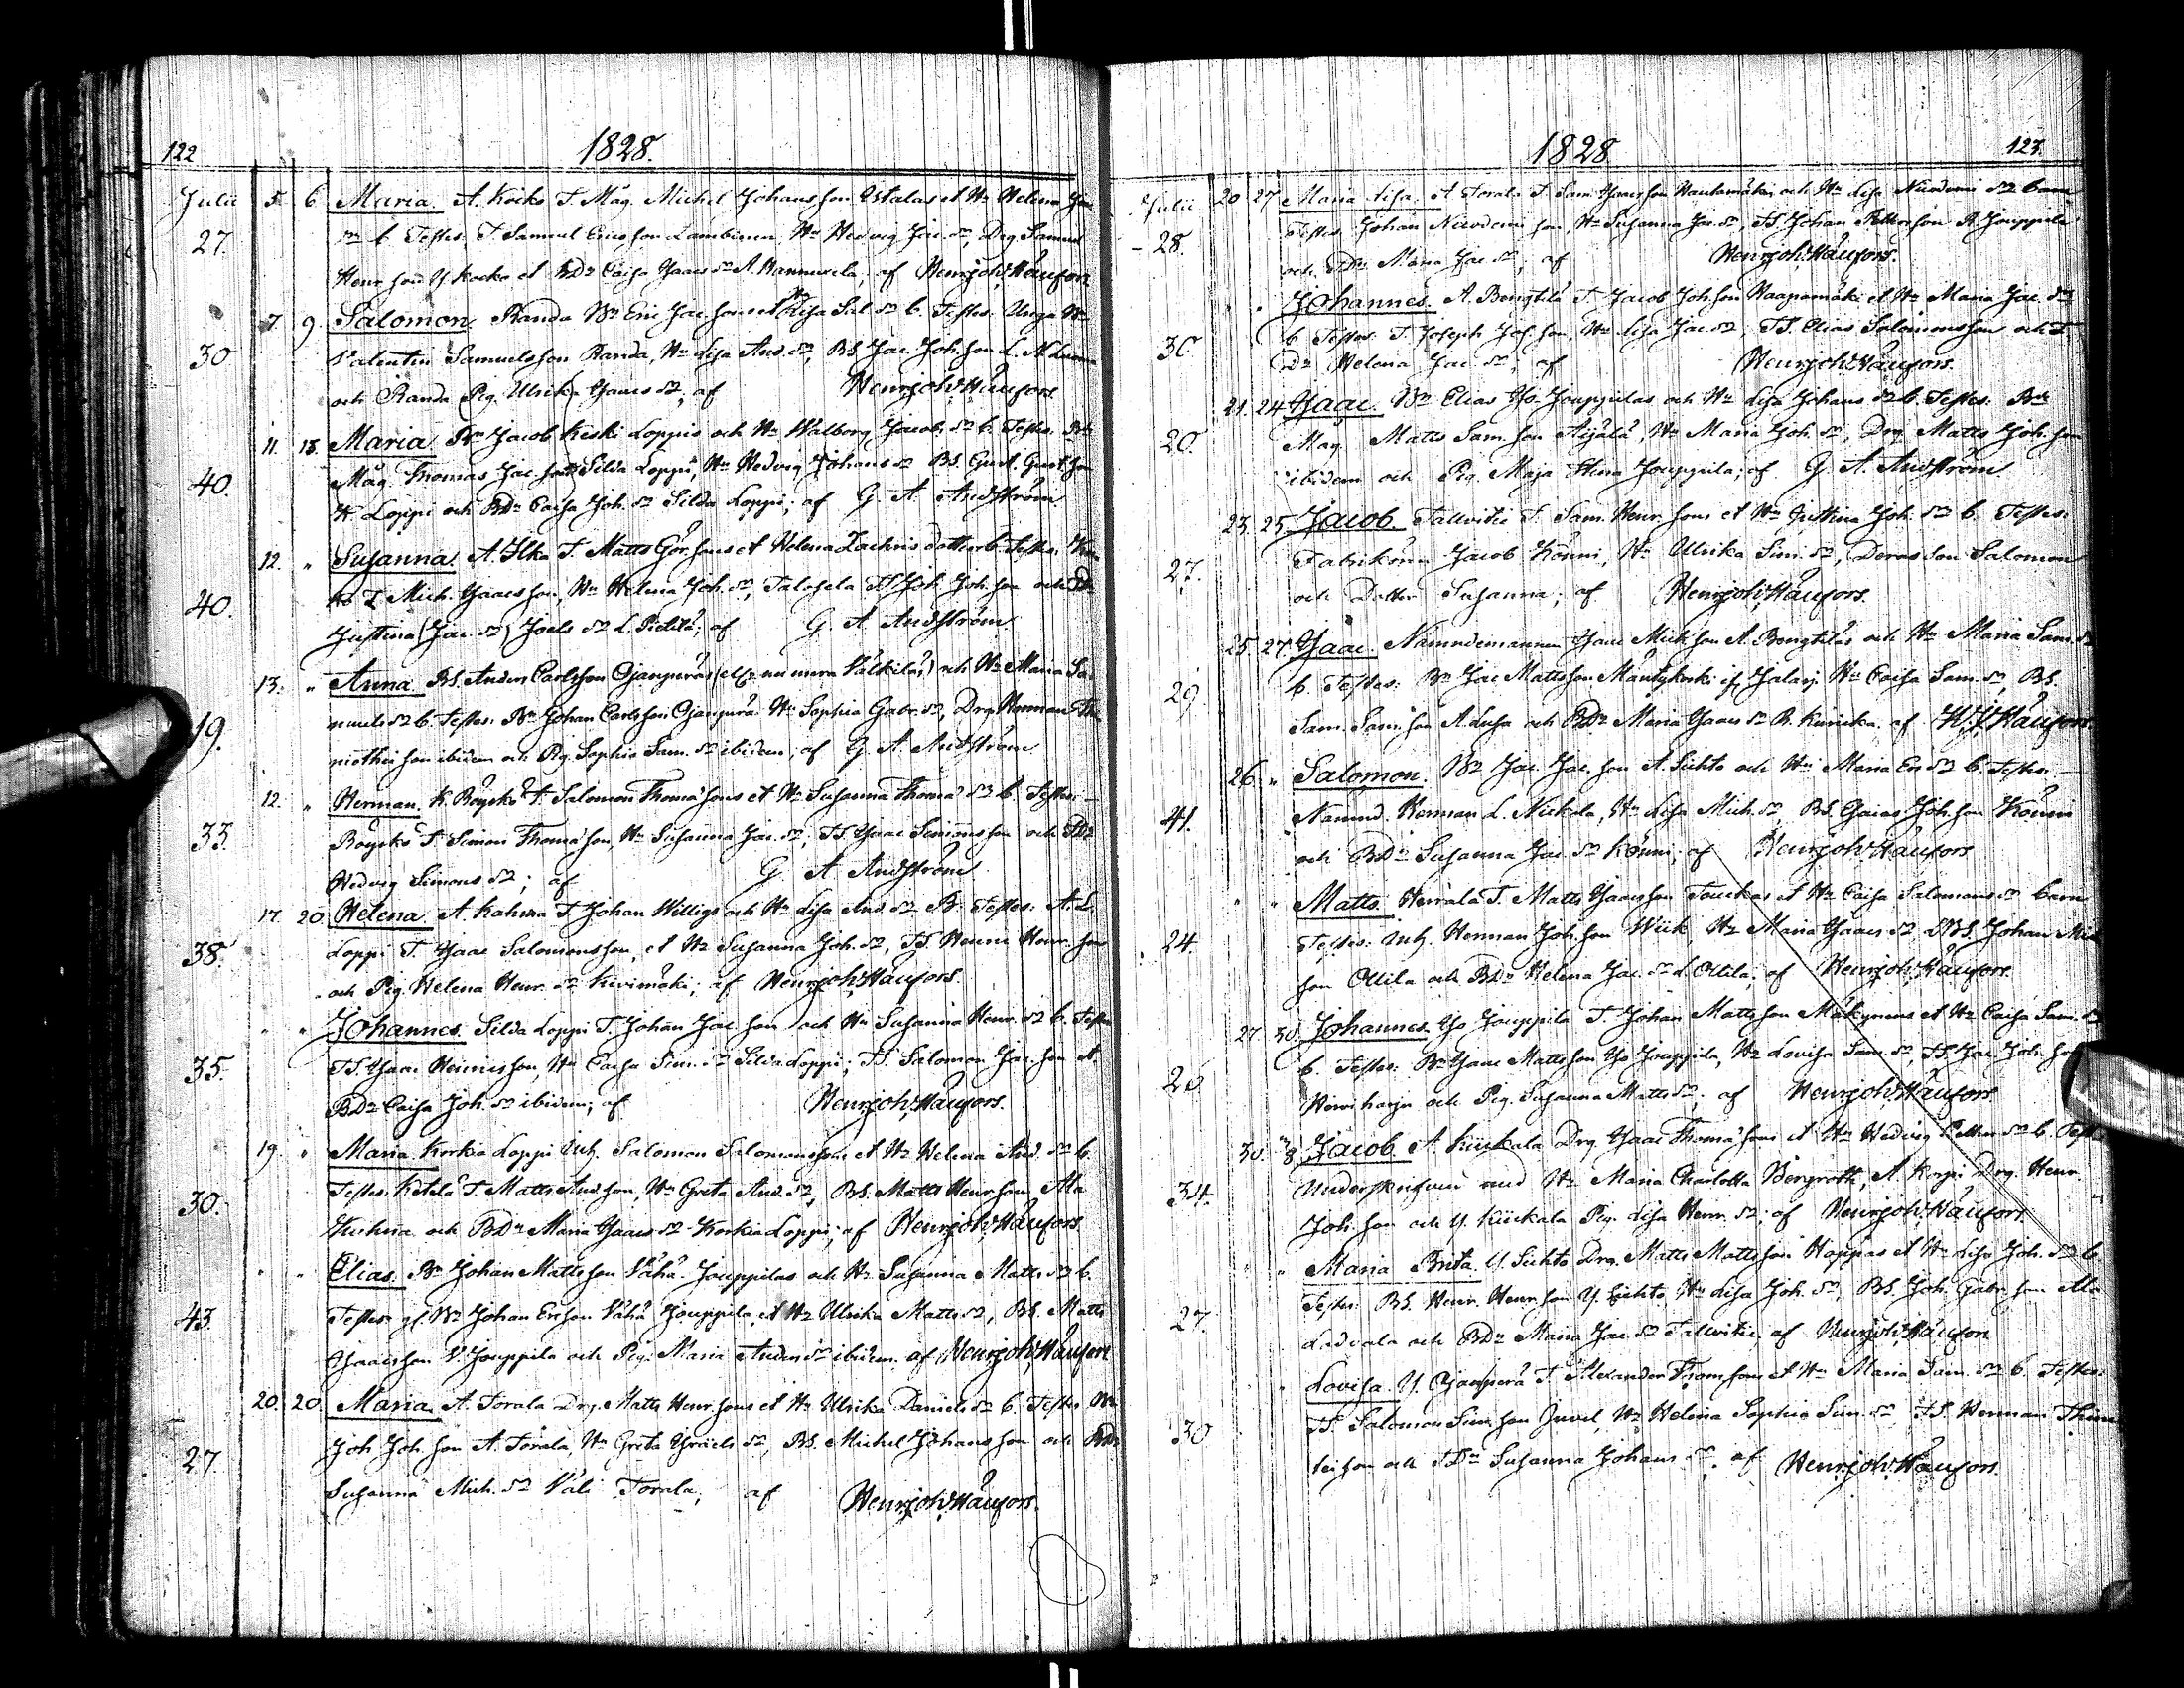 122 1828.
Julii 5. 6. Maria. A. Koiko T. Måg. Michel Johansson Istalas et Hu Helena Jac
27. Dr b. Testes: T. Samuel Ericsson Lambinen, Hu Hedvig Jac. Dr, Drg. Samuel
Henr. son Y. Kocko et BDr Caisa Isaacs Dr A. Hannuxela; af Henr. Joh. Håufors
7. 9. Salomon. Randa Bn Eric Jac. sons et Lisa Sal. Dr b. Testes: Unga Bn
30 Valentin Samuelsson Randa, Hu Lisa And. Dr, BS. Jac. Joh. son L.
och Randa Pig. Ulrika Isaacs Dr, af Henr. Joh. Håufors
11. 13. Maria Bn Jacob Keski Loppis och Hu Walborg Jacobs Dr b. Testes: Bn
40. Måg. Thomas Jac. son Silda Loppi, Hu Hedvig Johans Dr BS. Gust. Gust. son
Loppi och BDr Caisa Joh. Dr Silda Loppi; af G. A. Andström
12. " Susanna. A. Ilka T. Matts Gör. sons et Helena Zachris dotter b. Testes:
40. T. Mich. Isaacsson, Hu Helena Joh. Dr, TS Joh. Joh. son och TDr
Justina (Jac. Dr) Joels Dr L. Pietilä; af G. A. Andström
13. " Anna BS. Anders Carlsson Ojanperäs och Hu Maria Sa-
19. muels Dr b. Testes: Bn Johan Carlsson Ojanperä Hu Sophia Gabr. Dr, Drg. Herman Thi-
motheison ibidem och Pig. Sophia Sam. Dr ibidem; af G. A. Andström
12. " Herman. K. Röyskö T. Salomon Thomæ sons et Hu Susanna Thomæ Dr b. Testes:
33. Röyskö T. Simon Thomæ son, Hu Susanna Jac. Dr, TS Isaac Simonsson och TDr
Hedvig Simons Dr; af G. A. Andström
17. 20. Helena. A. Kahma T. Johan Willigs och Hu Lisa And. Dr B. Testes: A. L.
38. Loppi T. Isaac Salomonsson, et Hu Susanna Joh. Dr, TS. Henric Henr. son
och Pig. Helena Henr. Dr Kivimäki; af Henr. Joh. Håufors.
" " Johannes. Silda Loppi T. Johan Jac. son och Hu Susanna Henr. Dr b. Testes
35. TS. Isaac Henricsson, Hu Caisa Sim. Dr Silda Loppi; TS. Salomon Jac. son et
BDr Caisa Joh. Dr ibidem; af Henr. Joh. Håufors.
19. " Maria. Korkia Loppi Inh. Salomon Salomonssons et Hu Helena And. Dr b.
30. Testes: Ketola T. Matts And. son, Hu Greta And. Dr, BS. Matts Henr. son, Ala
och BDr Maria Isaacs Dr Korkia Loppi; af Henr. Joh. Håufors
" " Elias. Bn Johan Mattsson Vähä Jouppilas och Hu Susanna Matts Dr b.
43. Testes: Bn Johan Ersson Vähä Jouppila, et Hu Ulrika Matts Dr, BS. Matts
Isaacsson V. Jouppila och Pig. Maria Anders Dr ibidem. af Henr. Joh. Håufors
20. 20. Maria. A. Torala Drg. Matts Henr. sons et Hu Ulrika Daniels Dr b. Testes: Bn
27. Joh. Joh. son A. Torala, Hu Greta Israels Dr, BS. Michel Johansson och BDr
Susanna Mich. Dr Väli Torala; af Henr. Joh. Håufors.
1828 123.
Julii 20 27 Maria Lisa. A. Torala T. Sam. Isaacsson Hautamäki och Hu Lisa Nicodemi Dr barn
- 28. Testes: Johan Nicodemi son, Hu Susanna Jac. Dr, TS. Johan Pettersson A. Jouppila
och TDr Maria Jac. Dr, af Henr. Joh. Håufors.
" " Johannes. A. Bengtilä T. Jacob Joh. son Haapamäki et Hu Maria Jac. Dr
30. b. Testes: T. Joseph Jos. son, Hu Lisa Jac. Dr, TS. Elias Salomonsson och T.
Dr Helena Jac. Dr, af Henr. Joh. Håufors.
21. 24. Isaac. Bn Elias Yls. Jouppilas och Hu Lisa Johans Dr b. Testes: Bn
20. Måg. Matts Sam. son Äijälä, Hu Maria Joh. Dr, Drg. Matts Joh. son
ibidem och Pig. Maja Stina Jouppila; af G. A. Andström
23. 25. Jacob. Tallvitie T. Sam. Henr. sons et Hu Justina Joh. Dr b. Testes:
27. Fabrikören Jacob Könni, Hu Ulrika Sim. Dr, Deras son Salomon
och Dotter Susanna; af Henr. Joh. Håufors.
25. 27. Isaac. Nämndemannen Isaac Mich. son A. Bengtiläs och Hu Maria Sam. Dr
29. b. Testes: Bn Jac. Mattsson Mäntykoski Jalasj. Hu Caisa Sam. Dr, BS.
Sam. Sam. son A. Lusa och BDr Maria Isaacs Dr B. Kurikka. af H. J. Håufors.
26. " Salomon. Bn Jac. Jac. son A. Siehto och Hu Maria Er. Dr b. Testes:
41. Nämnd. Herman L. Nickola, Hu Lisa Mich. Dr, BS. Esaias Joh. son Könni
och BDr Susanna Jac. Dr Könni; af Henr. Joh. Håufors
" " Matts. Herrala T. Matts Isaacsson Touckas et Hu Caisa Salomons Dr barn
24. Testes: Inh. Herman Joh. son Wiik, Hu Maria Isaacs Dr BS. Johan Mich
son Ollila och BDr Helena Jac. Dr L. Ollila; af Henr. Joh. Håufors.
27. 30. Johannes. Yls. Jouppila T. Johan Mattsson Mäkynens et Hu Caisa Sam. Dr
26. b. Testes: Bn Isaac Mattsson Yls Jouppila, Hu Lovisa Sam. Dr, TS. Jac. Joh. son
Hirviharju och Pig. Susanna Matts Dr; af Henr. Joh. Håufors
30. 8. Jacob. A. Kiickala Drg. Isaac Thomæ sons et Hu Hedvig Petters Dr b. Test
34. Underskrifven med Hu Maria Charlotta Bergroth, A. Korpi Drg. Henr.
Joh. son och Y. Kiickala Pig. Lisa Henr. Dr; af Henr. Joh. Håufors
" Maria Brita. Y. Siehto Drg. Matts Mattsson Hoppas et Hu Lisa Joh. Dr b.
27. Testes: BS. Henr. Henr. son Y. Siehto, Hu Lisa Joh. Dr, BS. Joh. Gabr. son Ala
och BDr Maria Jac. Dr Tallvitie; af Henr. Joh. Håufors
" Lovisa. Y. Ojanperä T. Alexander Thom. sons et Hu Maria Sam. Dr b. Testes:
30 TS. Salomon Sim. son Juvel, Hu Helena Sophia Sim. Dr, TS. Herman Thimo-
tei son och TDr Susanna Johans Dr, af Henr. Joh. Håufors